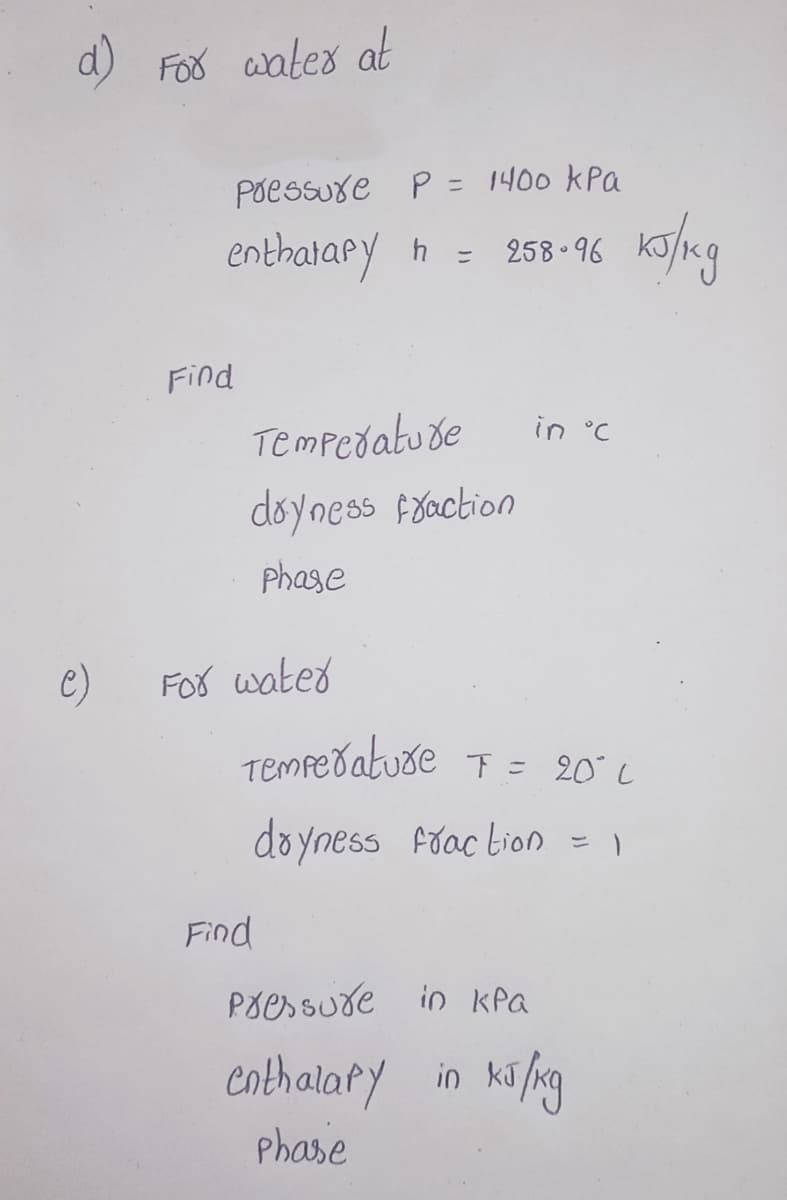 d) For water at
pressure P = 1400 kPa
enthalapy h = 258.96 kJ/kg
Find
Temperature in °C
dryness fraction
phase
e) For water
Temperature T = 20° C
dryness fraction = 1
Find
Pressure in kPa
enthalapy in kJ/kg
phase